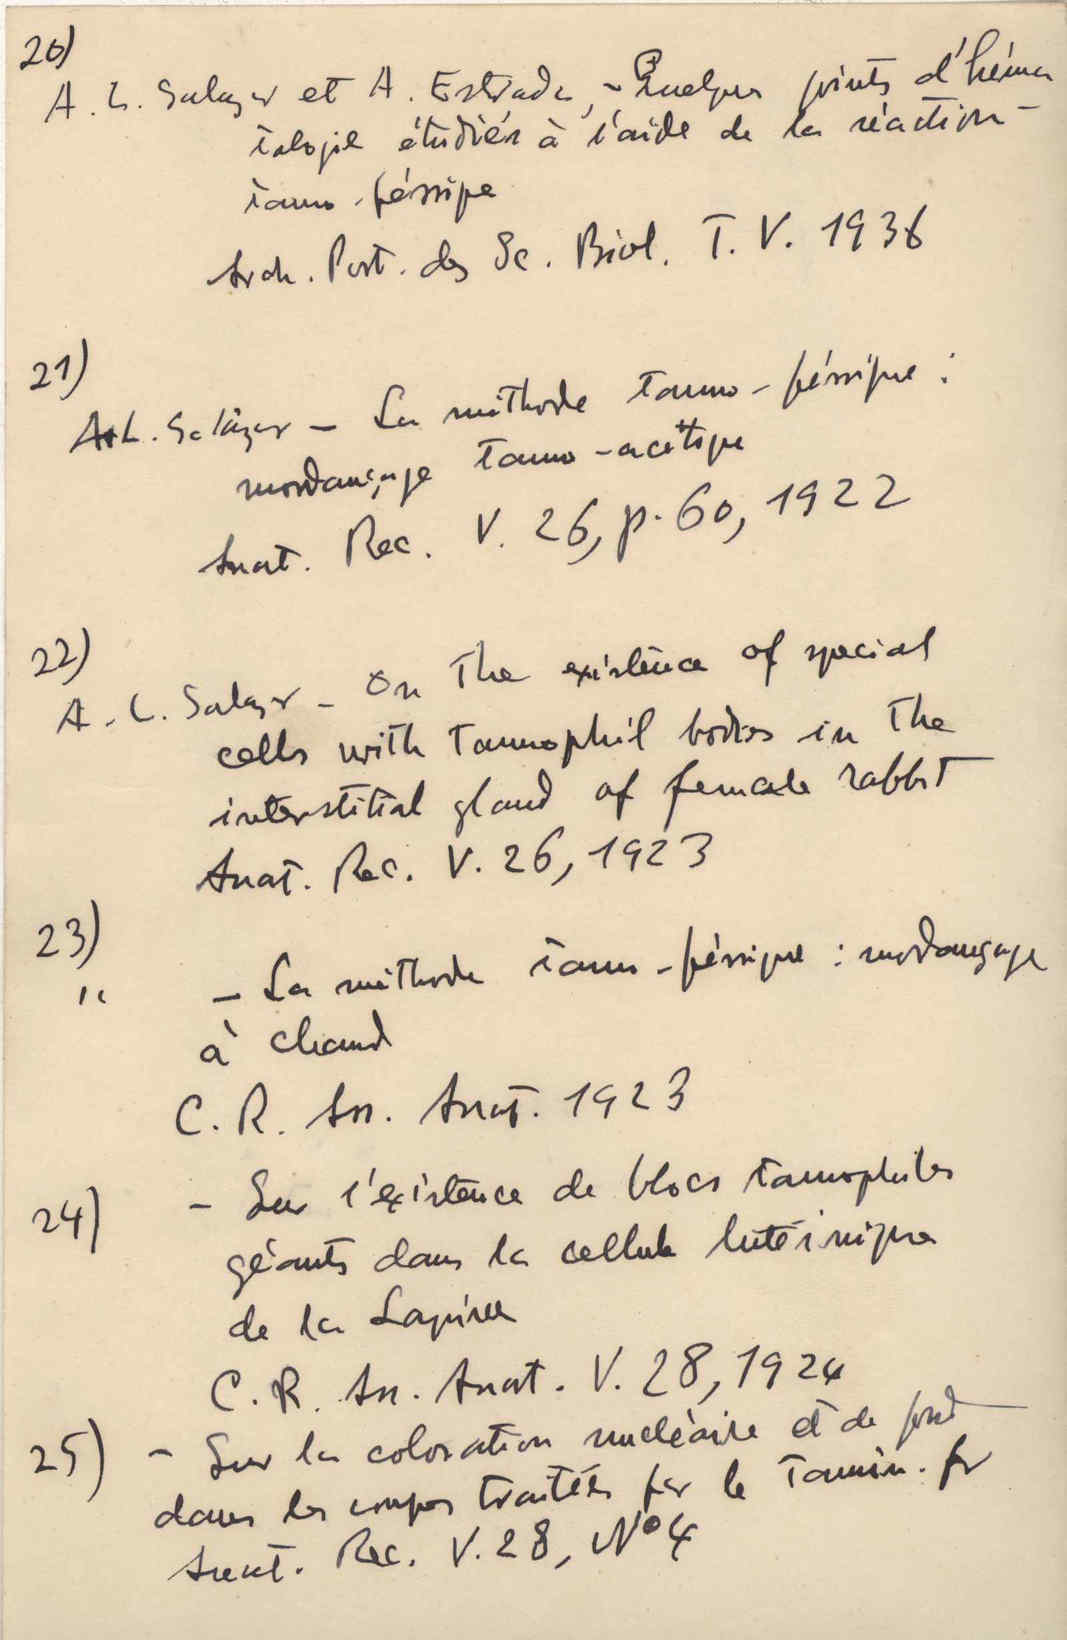 20)
A. L. Salazar et A. Estrada, - Quelques points d'héma
tologie étudiés à l'aide de la réaction -
tanno-férrique
Arch. Port. des Sc. Biol. T. V. 1936
21)
A. L. Salazar - La méthode tanno-férrique :
mordançage tanno-acétique
Anat. Rec. V. 26, p. 60, 1922
22)
A. L. Salazar - On the existence of special
cells with tannophil bodies in the
interstitial gland of female rabbit
Anat. Rec. V. 26, 1923
23)
" - La méthode tanno-férrique : mordançage
à chaud
C. R. Ass. Anat. 1923
24) - Sur l'existence de blocs tannophiles
géants dans la cellule lutéinique
de la Lapine
C. R. Ass. Anat. V. 28, 1924
25) - Sur la coloration nucléaire et de fond
dans les coupes traitées par le Tannin. fr
Anat. Rec. V. 28, Nº 4